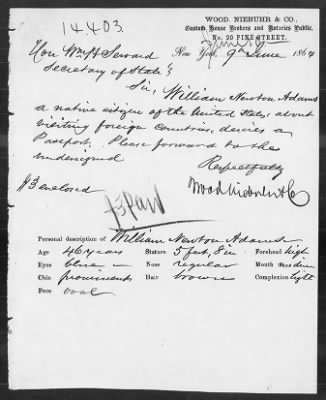 14403
WOOD, NIEBUHR & CO.,
Custom House Brokers and Notaries Public,
No. 20 PINE STREET.
New York, 9th June 1864
Hon Wm H Seward
Secretary of State
Sir, William Newton Adams
a native citizen of the United States, about
visiting foreign countries, desires a
Passport, Please forward to the
undersigned
Respectfully
Wood Niebuhr & Co
$3 enclosed
$3 Paid
Personal description of William Newton Adams
Age 46 years Stature 5 feet, 8 in Forehead high
Eyes blue Nose regular Mouth medium
Chin prominent Hair brown Complexion light
Face oval